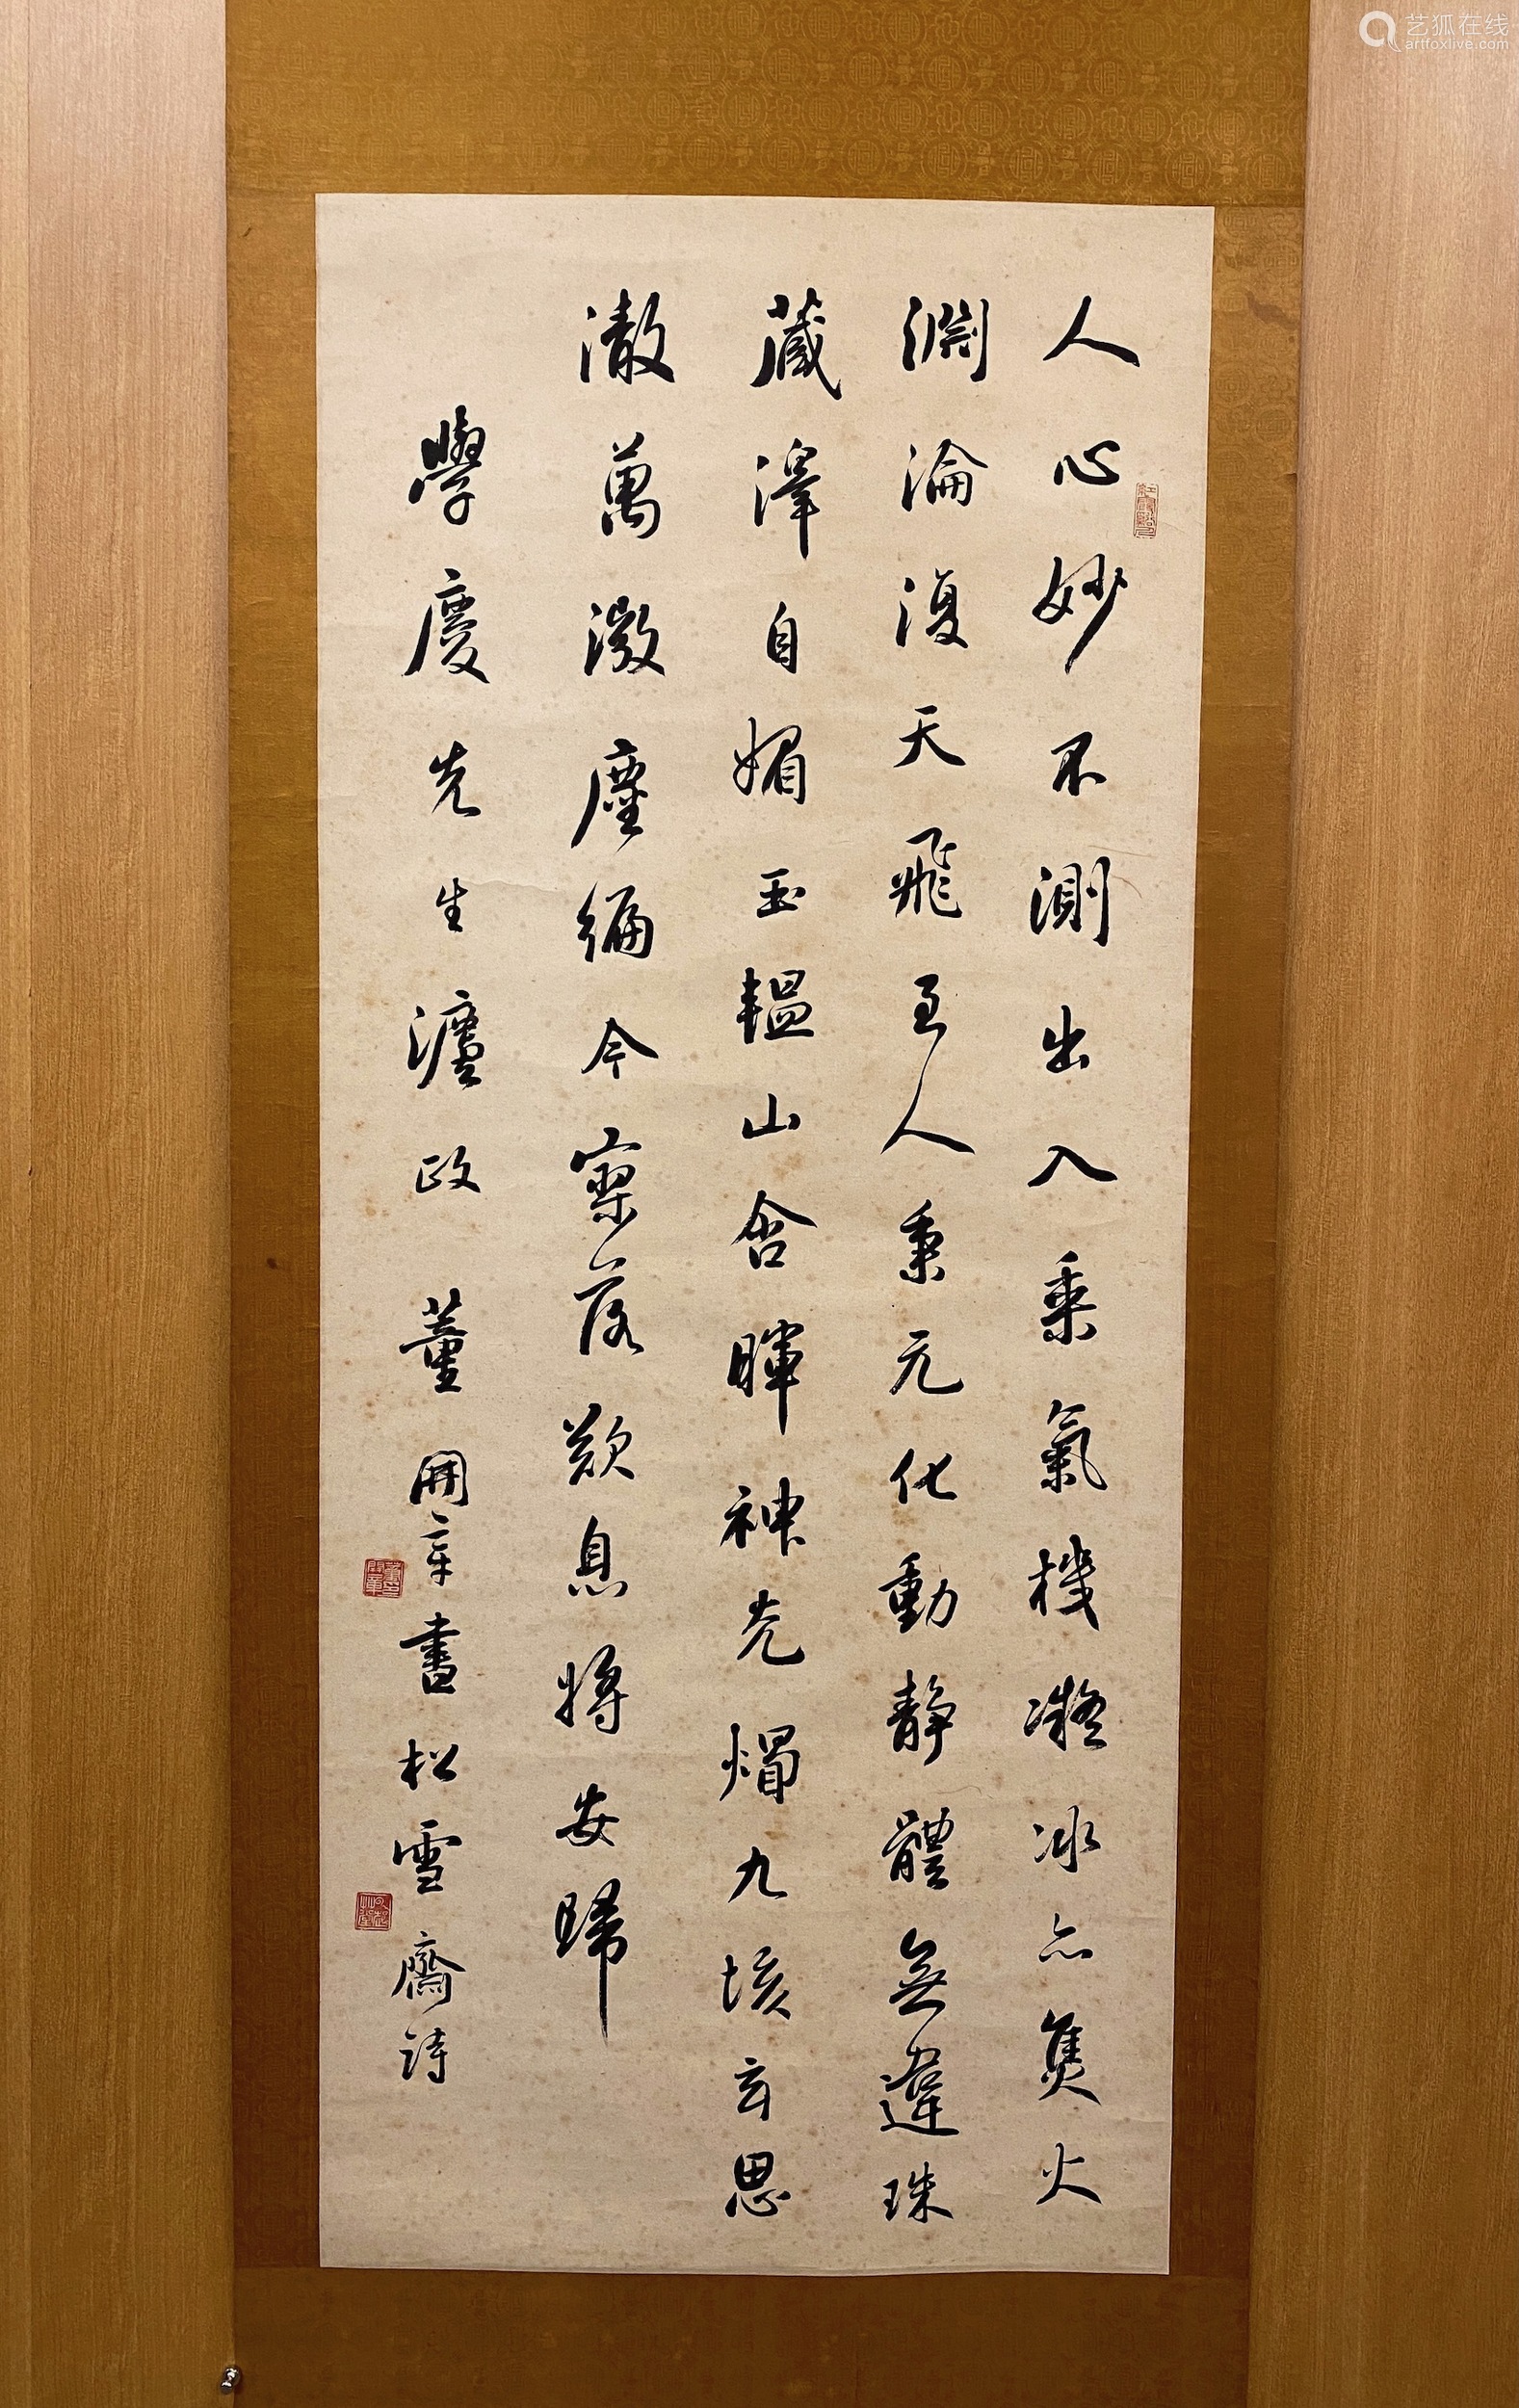 人心妙不測出入乘氣機凝冰亦焦火
淵淪復天飛至人秉元化動靜體無違珠
藏澤自媚玉韞山含暉神光燭九垓玄思
澈萬微塵編今寥落歎息將安歸
學慶先生瀍政 董開章書松雪齋詩
董開章印
艺狐在线
artfoxlive.com